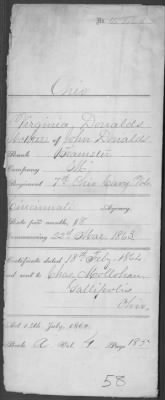 No.
Ohio
Virginia Donalds
Mother of John Donalds
Rank Teamster
Company "M"
Regiment 7th Ohio Cavy Vols
Cincinnati Agency.
Rate per month, $8
Commencing 22d Mar 1863
Certificate dated 18th Feby 1864
and sent to
Gallipolis
Ohio.
Act 14th July, 1862.
Book A Vol. Page 185
58